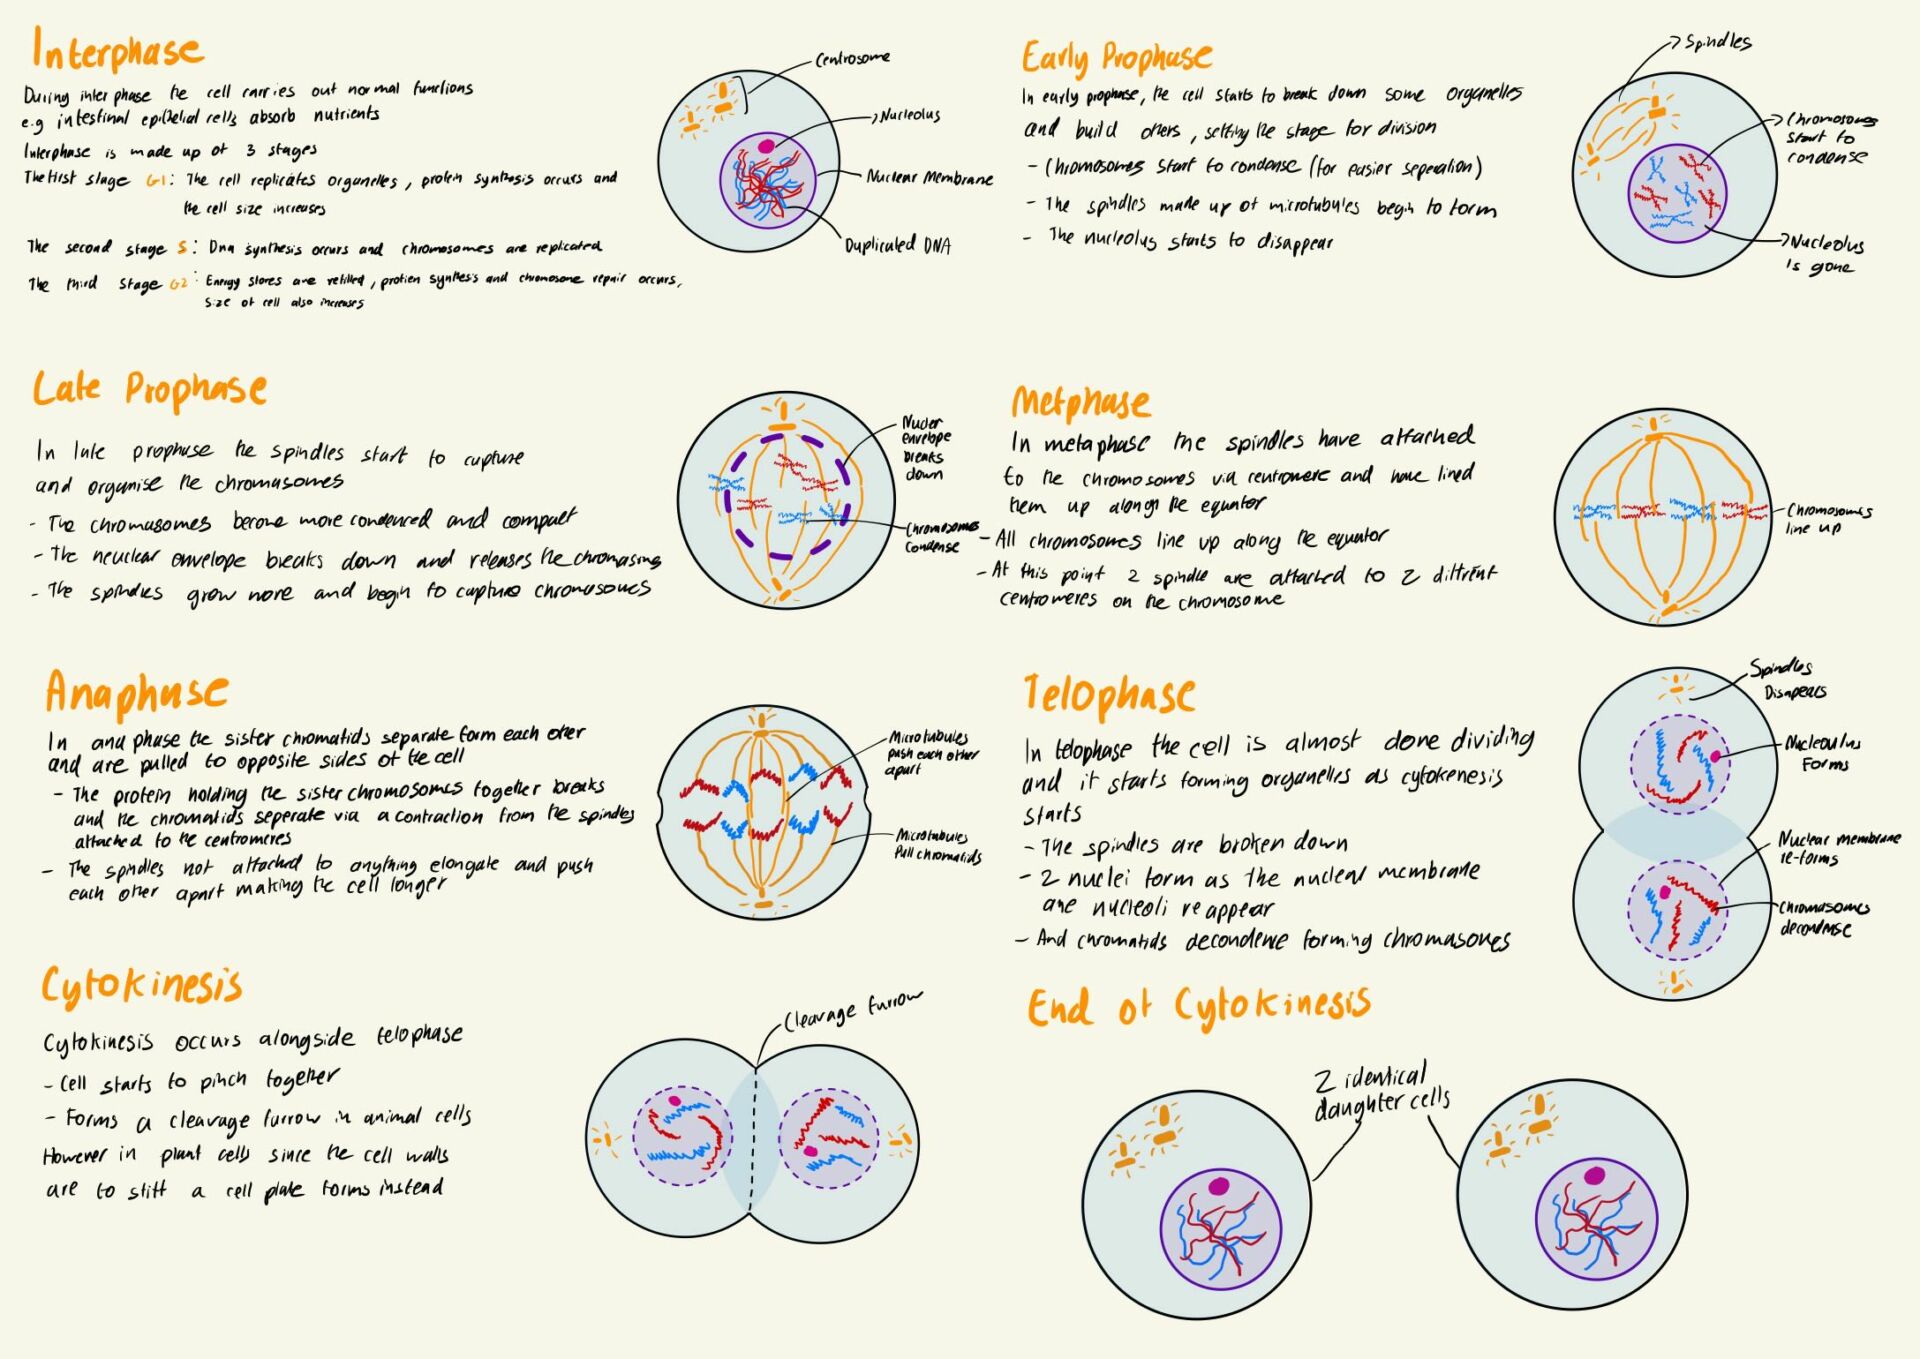 Interphase
During interphase the cell carries out normal functions
e.g intestinal epithelial cells absorb nutrients
Interphase is made up of 3 stages
The first stage G1: The cell replicates organelles, protein synthesis occurs and
the cell size increases
The second stage S: Dna synthesis occurs and chromosomes are replicated
The third stage G2: Energy stores are refilled, protien synthesis and chromosome repair occurs,
size of cell also increases
Centrosome
Nucleolus
Nuclear Membrane
Duplicated DNA
Early Prophase
In early prophase, the cell starts to break down some organelles
and build others, setting the stage for division
- Chromosomes start to condense (for easier seperation)
- The spindles made up of microtubules begin to form
- The nucleolus starts to disappear
Spindles
Chromosomes
start to
condense
Nucleolus
is gone
Late Prophase
In late prophase the spindles start to capture
and organise the chromasomes
- The chromasomes become more condenced and compact
- The neuclear envelope breaks down and releases the chromasoms
- The spindles grow more and begin to capture chromosomes
Nucler
envelope
breaks
down
Chromosomes
Condense
Metphase
In metaphase the spindles have attached
to the chromosomes via centromere and have lined
them up along the equator
- All chromosomes line up along the equator
- At this point 2 spindle are attached to 2 diffrent
centromeres on the chromosome
Chromosomes
line up
Anaphase
In anaphase the sister chromatids separate form each other
and are pulled to opposite sides of the cell
- The protein holding the sister chromosomes together breaks
and the chromatids seperate via a contraction from the spindles
attached to the centromeres
- The spindles not attached to anything elongate and push
each other apart making the cell longer
Microtubules
push each other
apart
Microtubules
Pull chromatids
Telophase
In telophase the cell is almost done dividing
and it starts forming organelles as cytokenesis
starts
- The spindles are broken down
- 2 nuclei form as the nuclear membrane
ane nucleoli reappear
- And chromatids decondence forming chromasomes
Spindles
Disapears
Nucleoulus
Forms
Nuclear membrane
re-forms
Chromasomes
decondense
Cytokinesis
Cytokinesis occurs alongside telophase
- Cell starts to pinch together
- Forms a cleavage furrow in animal cells
However in plant cells since the cell walls
are to stiff a cell plate forms instead
Cleavage furrow
End of Cytokinesis
2 identical
daughter cells